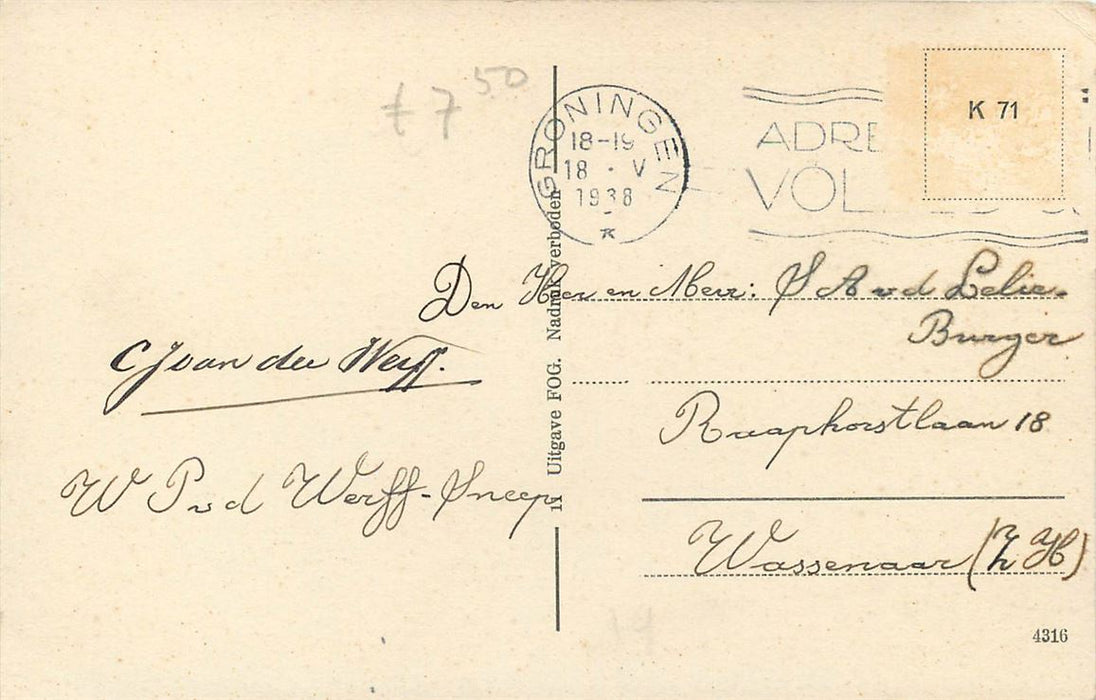 £ 7 50
GRONINGEN
18-19
18 · V
1938
ADRE
VOL
K 71
Den Heer en Mevr: S A v d Lelie-
Burger
C J van der Werff.
Raaphorstlaan 18
W P v d Werff-Sneep
Wassenaar (Z H)
Uitgave FOG. Nadruk verboden
4316